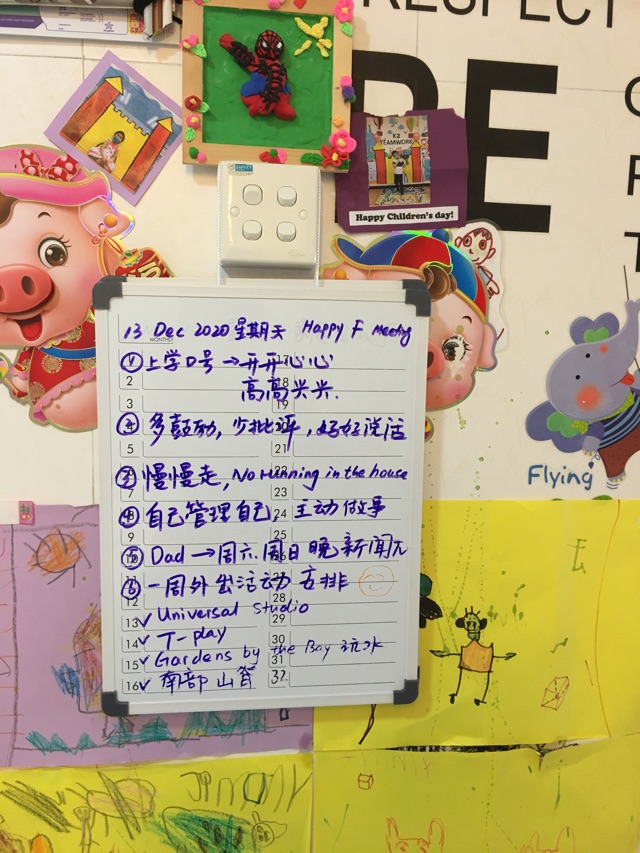 RESPECT
RE
K2
TEAMWORK
Happy Children's day!
13 Dec 2020 星期天 Happy F meeting
MONTHLY
① 上学口号 → 开开心心
高高兴兴.
② 多鼓励, 少批评, 好好说话
③ 慢慢走, No running in the house
④ 自己管理自己 主动做事
⑤ Dad → 周六.周日晚新闻
⑥ 一周外出活动安排
✓ Universal Studio
✓ T-play
✓ Gardens by the Bay 玩水
✓ 南部山脊
2
3
5
7
12
13
14
15
16
17
18
19
21
23
24
25
28
29
30
31
32
Flying